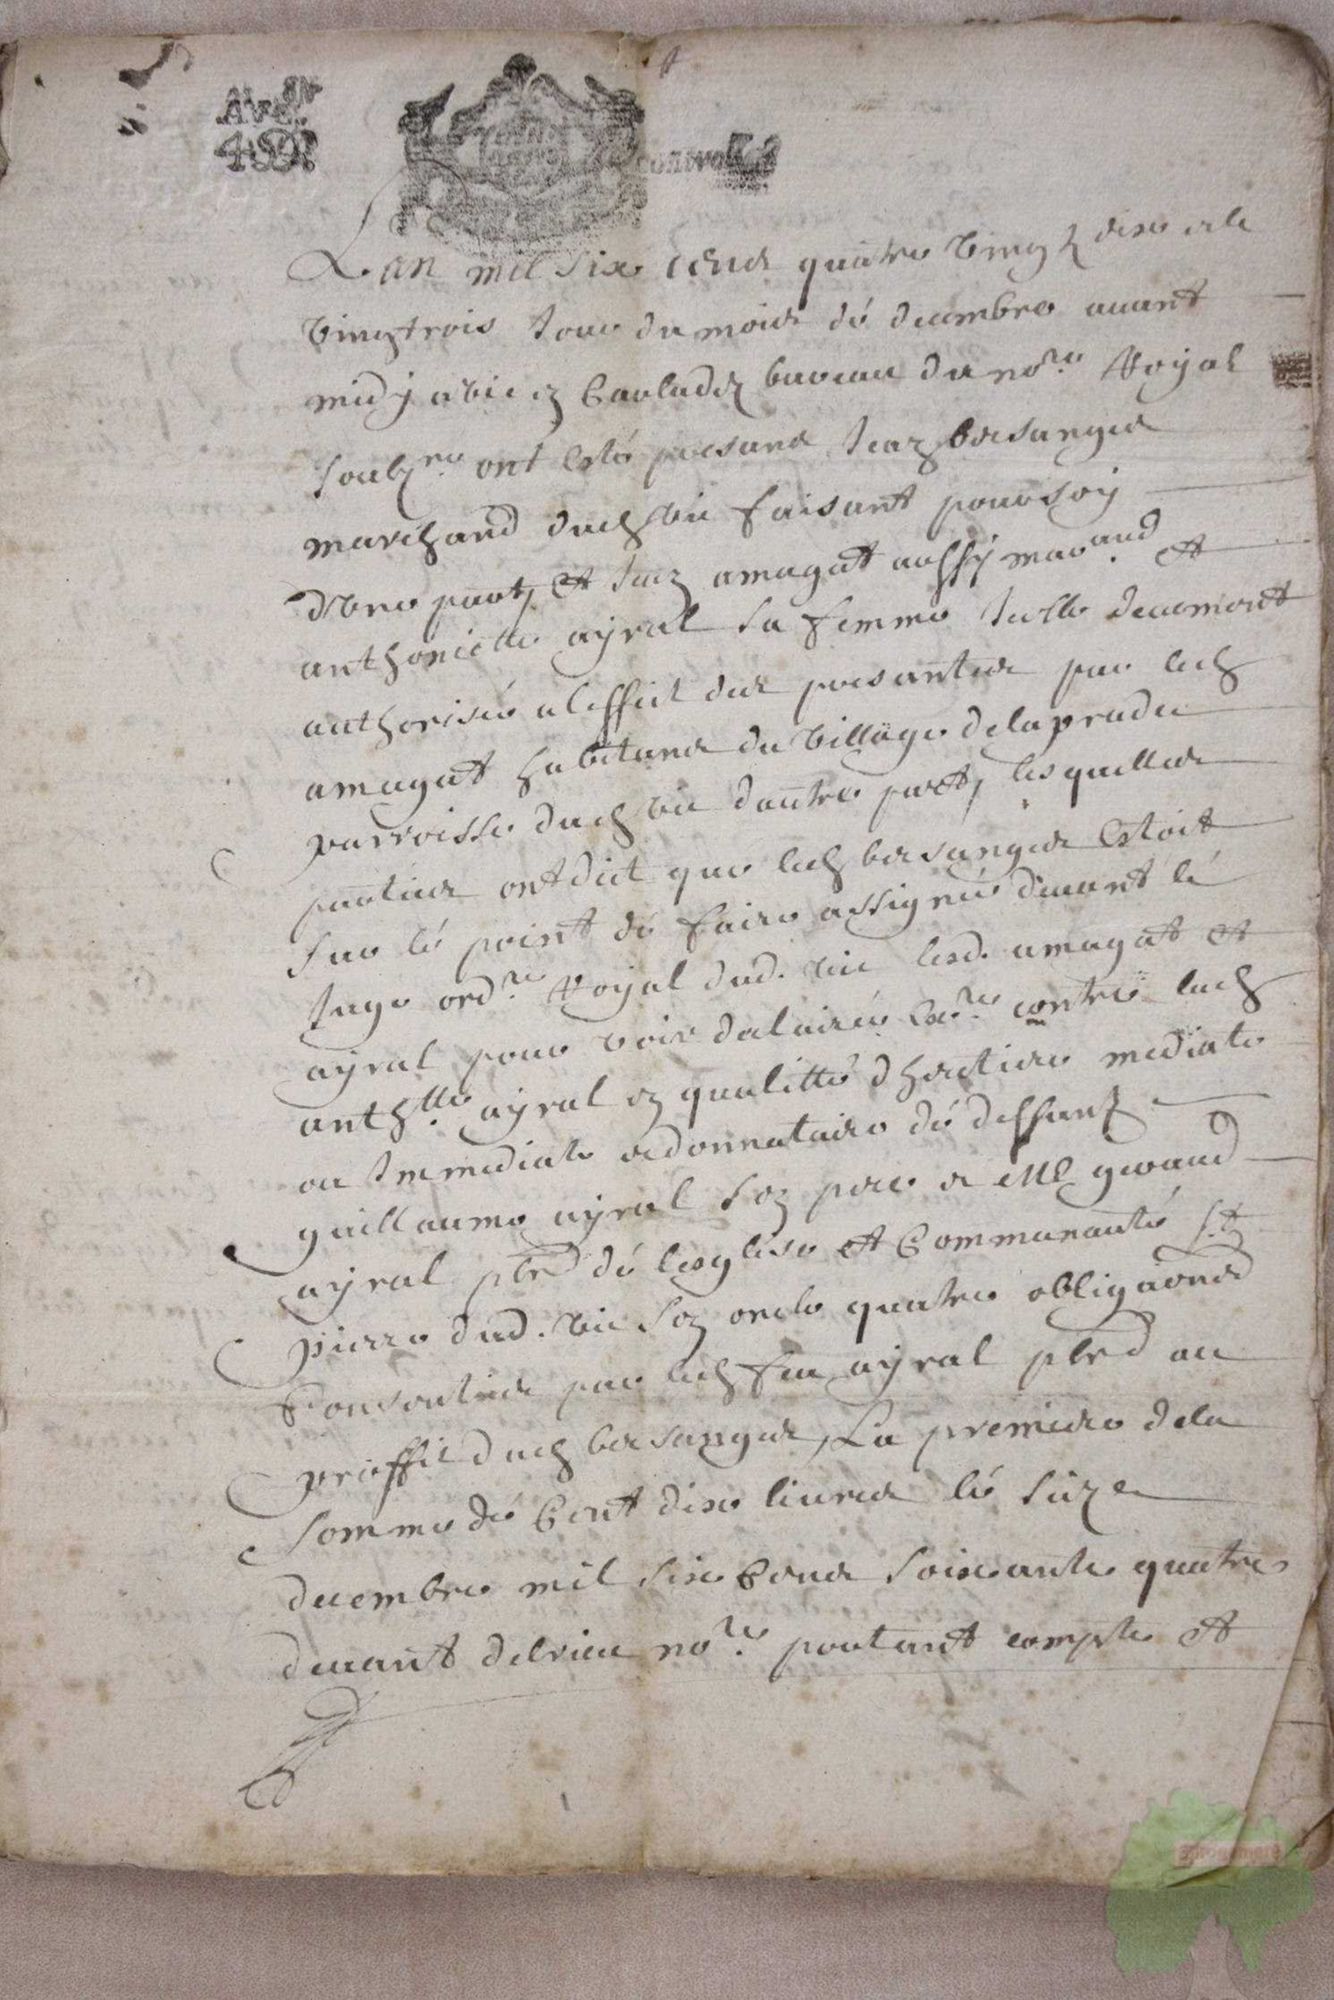 Lan mil six cens quatre vingt dixe et le
vingtrois jour du moix dé decembre auant
midy a vic en Carladez bureau du no.re Royal
soubz.ne ont esté presans Jean bersanges
marchand dud vic faisant pour soy
d'vne part, et Jean amagat aussy mar.and et
anthoniette ayral sa femme Icelle deuemant
authorisée a leffect des presantes par led
amagat habitans du village de laprade
parroisse dud vic dautre part, lesquelles
parties ont dict que led bersanges estoit
sur lé point dé faire assigner deuant lé
Juge ord.re Royal dud. vic lesd. amagat et
ayral pour voir declairer exe.re contre lad
anth.tte ayral en qualitté d'heritiere mediate
ou Immediate et donnataire dé deffunt
guillaume ayral son pere et Me guerand
ayral pbre dé lesglise et Communauté St
pierre dud. vic son oncle quatre obligaõns
Consenties par led feu ayral pbre au
proffit dud bersanges, La premiere dela
somme dé Cent dixe liures lé seize
decembre mil six Cens soixante quatre
deuant delrieu no.re portant compte et